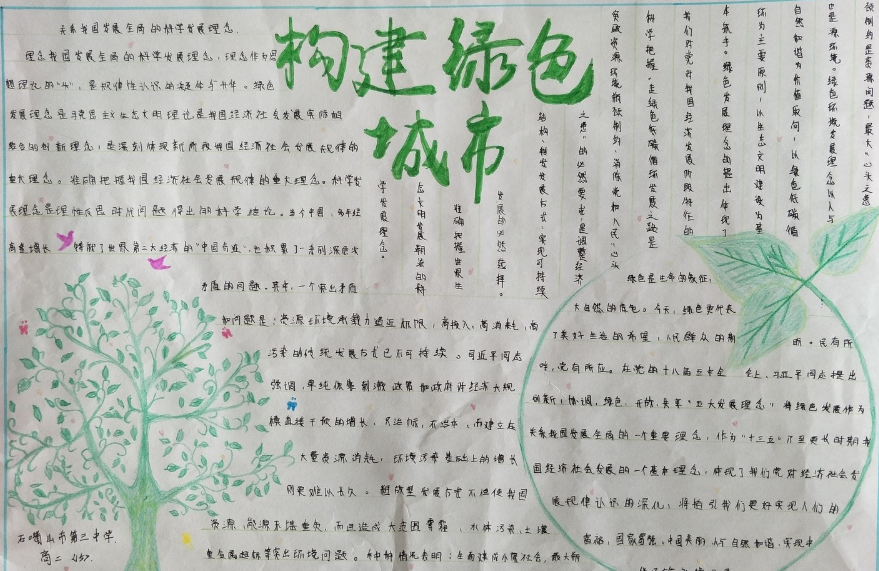 构建绿色
城市
关系我国发展全局的科学发展理念.
理念我国发展全局的科学发展理念,理念作为思
想理论的"",是规律性认识的凝练与升华。绿色
发展理念是马克思主义生态文明理论是我国经济社会发展实际相
融合的创新理念,是深刻体现新阶段我国经济社会发展规律的
重大理念。准确把握我国经济社会发展规律的重大理念。科学发
展理念是理性反思时代问题得出的科学结论。当个中国,多年经
高速增长 铸就了世界第二大经济的"中国奇迹",也积累了一系列深层次
矛盾的问题。其中,一个突出矛盾
和问题是:资源环境承载力逼近极限,高投入,高消耗,高
污染的传统发展方式已不可持续。习近平同志
强调,单纯依靠刺激政策和政府对经济大规
模直接干预的增长,只治标,不治本,而建立在
大量资源消耗,环境污染基础上的增长
则更难以长久。粗放型发展方式不但使我国
资源,能源不堪重负,而且造成大范围雾霾,水体污染,土壤
重金属超标等突出环境问题。种种情况表明:全面建成小康社会,最大
倾制约是资源问题,最大"心头之患
也是源环境。绿色环境发展理念以人与
自然和谐为价值取向,以绿色低碳循
环为主要原则,以生态文明建设为基
本抓手。绿色发展理念的提出体现了
我们党对我国经济发展阶段特征的
科学把握。走绿色低碳循环发展之路是
突破资源环境瓶颈制约,消除党和人民"心头
之患"的必然要求,是调整经济
结构,转变发展方式,实现可持续
发展的必然选择。
准确把握世界生
态文明发展潮流的科
学发展理念。
绿色是生命的象征,
大自然的底色。今天,绿色更代表
了美好生活的希望,人民群众的期
盼。民有所
呼,党有所应。在党的十八届五中全 会上,习近平同志提出
创新,协调,绿色,开放,共享"五大发展理念"将绿色发展作为
关系我国发展全局的一个重要理念,作为"十三五"乃至更长时期我
国经济社会发展的一个基本理念,体现了我们党对经济社会发
展规律认识的深化,将指引我们更好实现人们的
富裕,国家富强,中国美丽,人与自然和谐,实现中
石嘴山市第三中学
高二